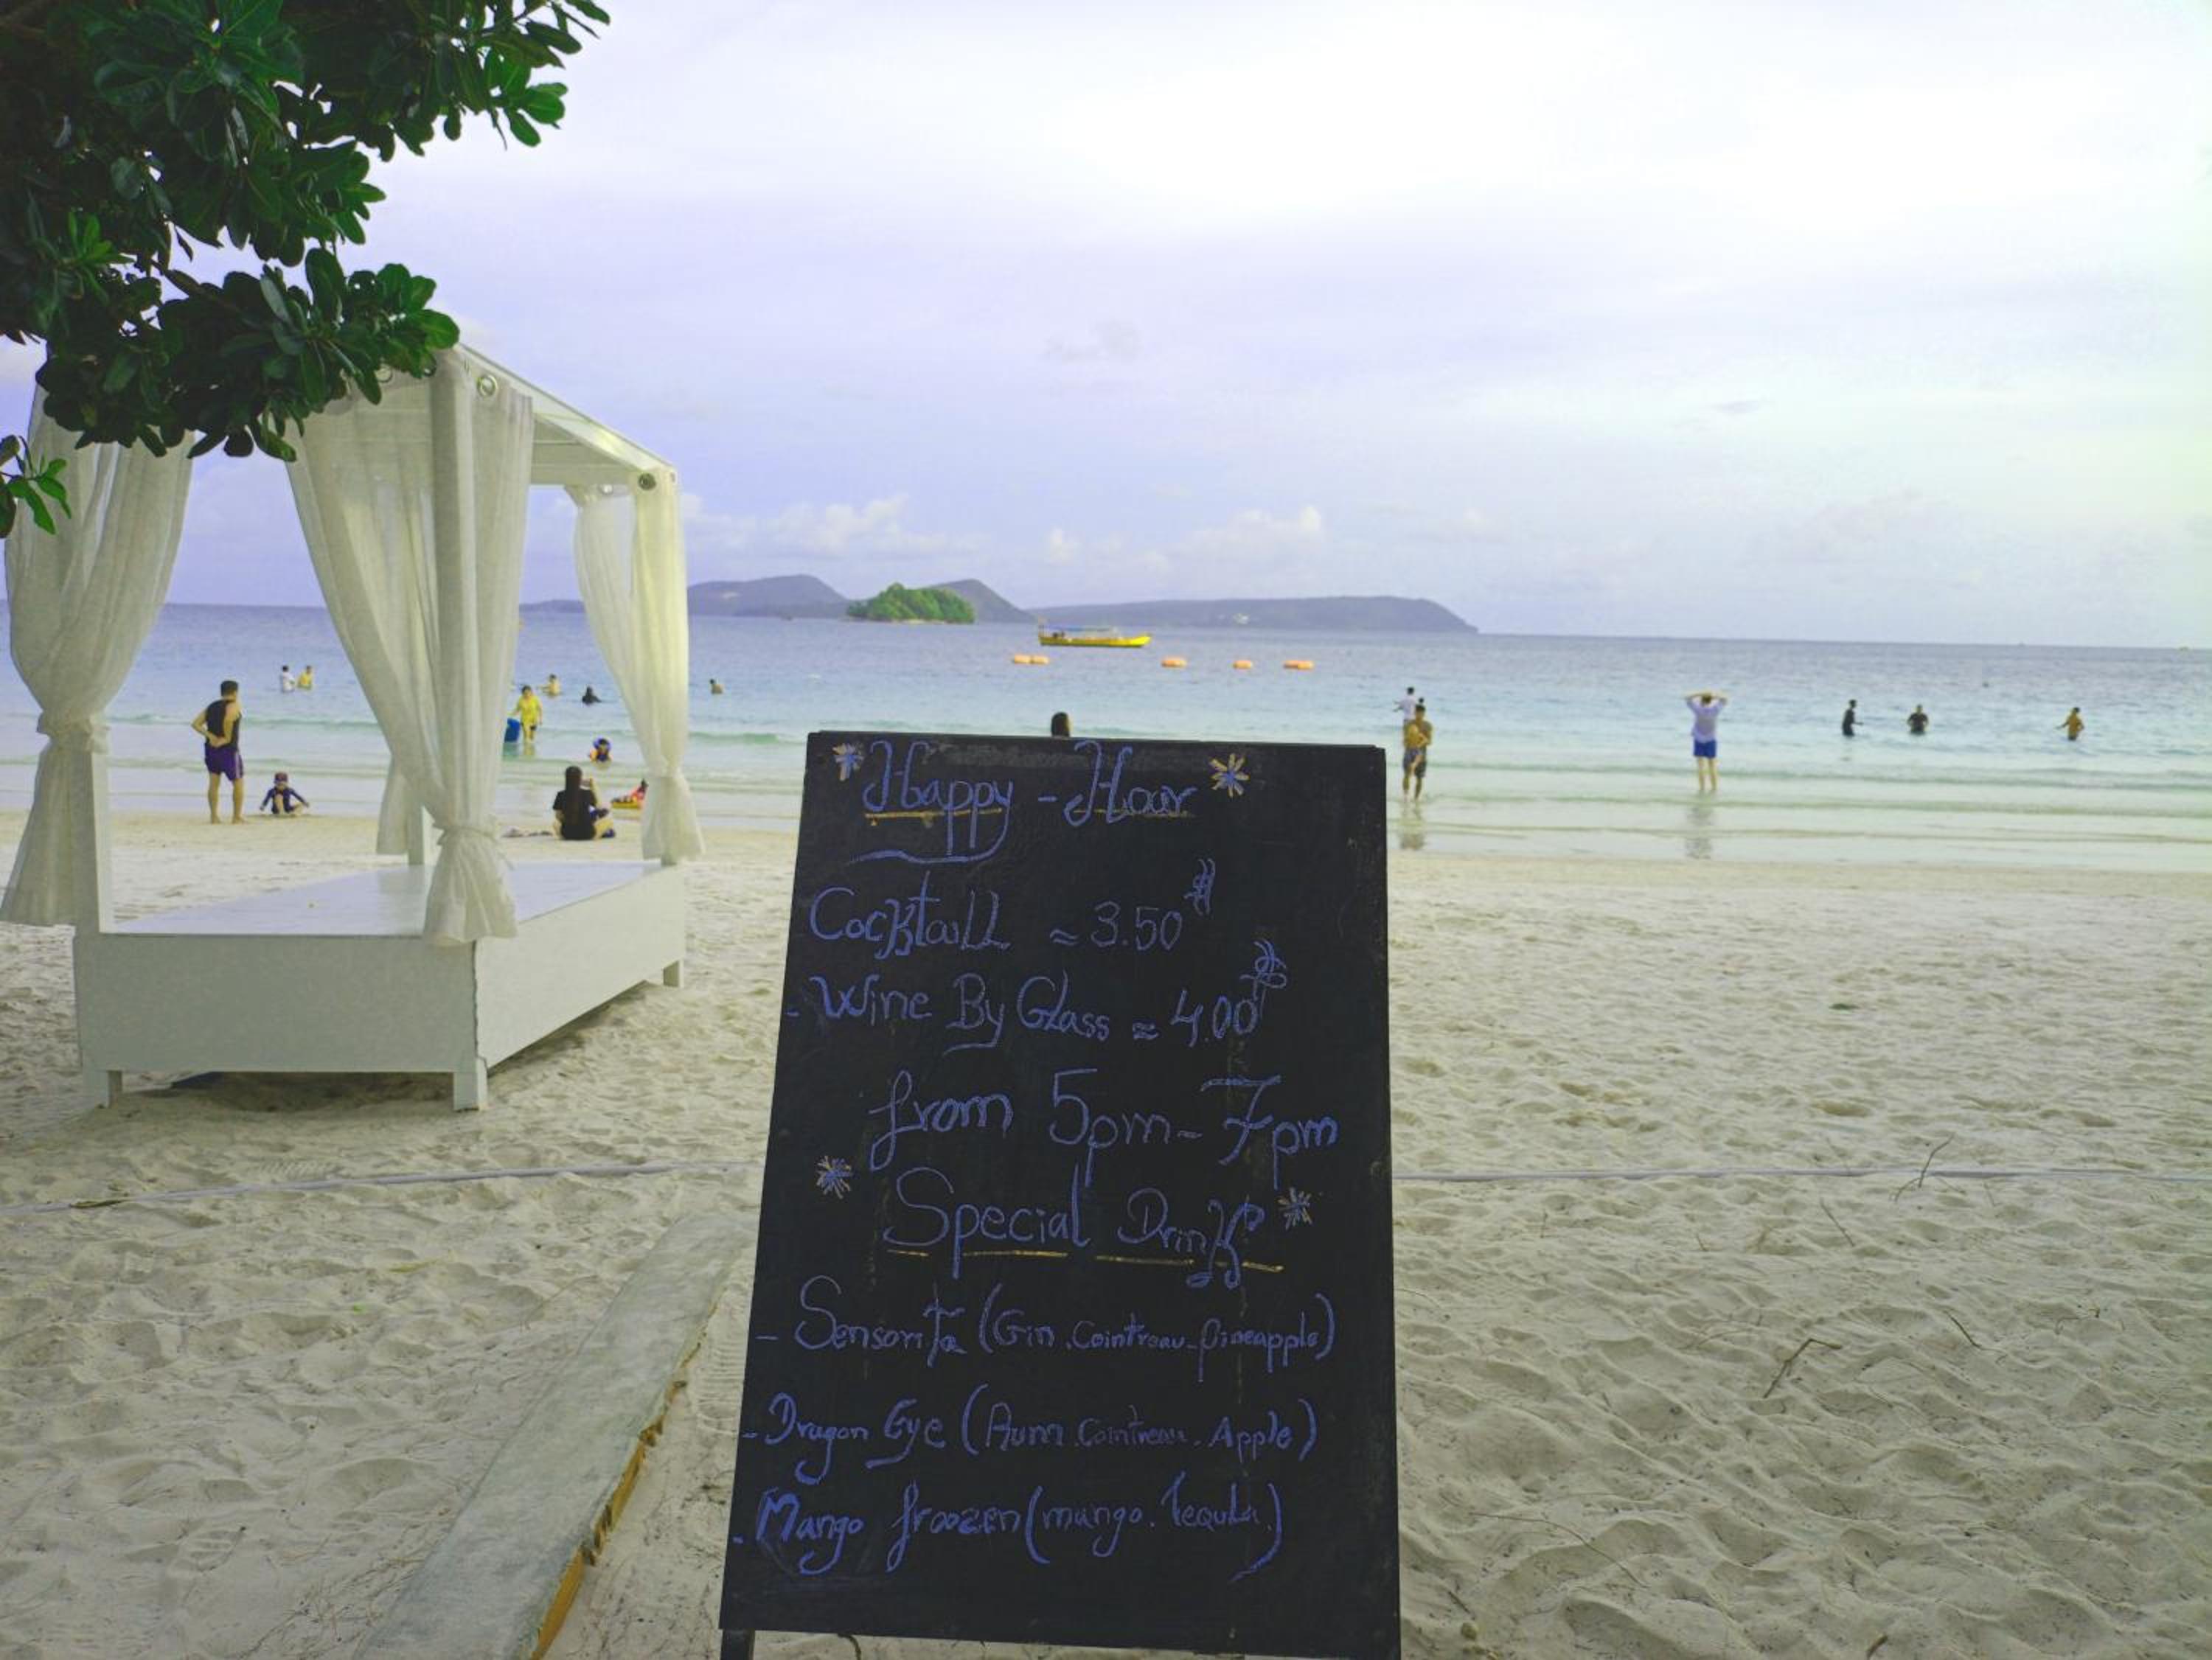 Happy - Hour
Cocktaill ≈ 3.50$
- Wine By Glass ≈ 4.00$
from 5pm - 7pm
Special Drink
- Sensorita (Gin. Cointreau - pineapple)
- Dragon Eye (Rum. Cointreau. Apple)
- Mango froozen (mango. Tequila.)